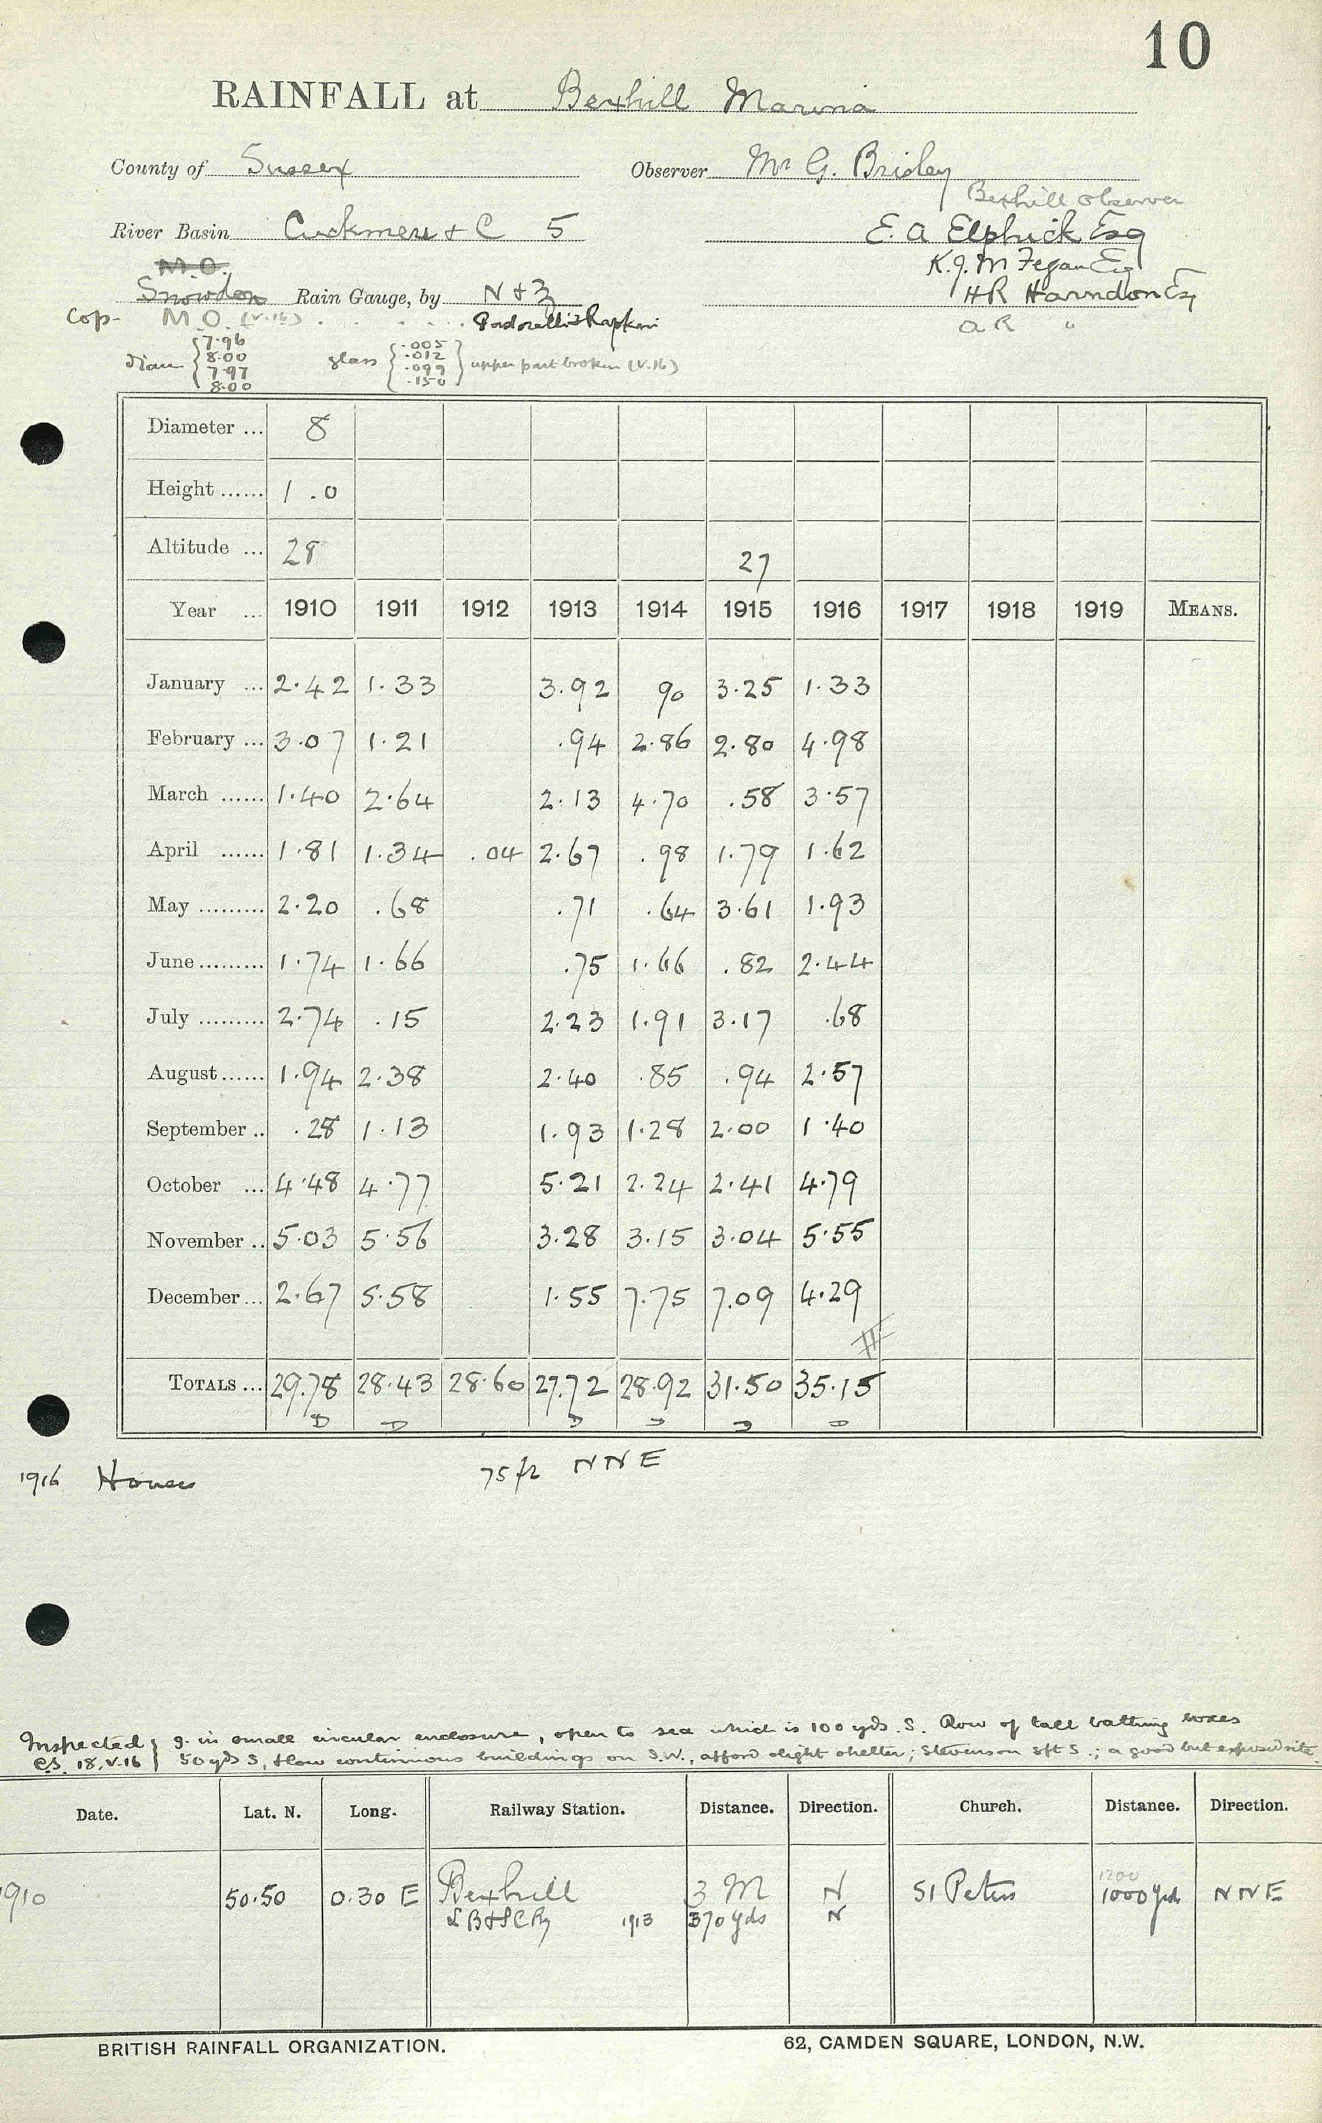 10
RAINFALL at Bexhill Marina
County of Sussex Observer Mr G. Brisley
Bexhill Observer
River Basin Cuckmere & C 5 E. A Elphick Esq
M.O. K.J. M Fegan Esq
Snowdon Rain Gauge, by N & Z H R Harndon Esq
Cop. M.O. (V.16) A R "
diam { 7.96 8.00 7.97 8.00 glass { .005 .012 .099 .150 } upper part broken (V.16)
Diameter ... 8
Height ...... 1.0
Altitude ... 28 27
Year ... 1910 1911 1912 1913 1914 1915 1916 1917 1918 1919 MEANS.
January ... 2.42 1.33 3.92 90 3.25 1.33
February ... 3.07 1.21 .94 2.86 2.80 4.98
March ...... 1.40 2.64 2.13 4.70 .58 3.57
April ...... 1.81 1.34 .04 2.67 .98 1.79 1.62
May ......... 2.20 .68 .71 .64 3.61 1.93
June ......... 1.74 1.66 .75 1.66 .82 2.44
July ......... 2.74 .15 2.23 1.91 3.17 .68
August ...... 1.94 2.38 2.40 .85 .94 2.57
September .. .28 1.13 1.93 1.28 2.00 1.40
October ... 4.48 4.77 5.21 2.24 2.41 4.79
November .. 5.03 5.56 3.28 3.15 3.04 5.55
December ... 2.67 5.58 1.55 7.75 7.09 4.29
TOTALS ... 29.78 28.43 28.60 27.72 28.92 31.50 35.15
1916 Houses 75 ft NNE
Inspected } g. in small circular enclosure, open to sea which is 100 yds. S. Row of tall bathing boxes
C.S. 18.V.16 } 50 yds S, & low continuous buildings on S.W., afford slight shelter; Stevenson 8ft S.; a good but exposed site.
Date. Lat. N. Long. Railway Station. Distance. Direction. Church. Distance. Direction.
1200
1910 50.50 0.30 E Bexhill 3 M N St Peters 1000 yds NNE
L B & S C Ry 1913 370 yds N
BRITISH RAINFALL ORGANIZATION. 62, CAMDEN SQUARE, LONDON, N.W.